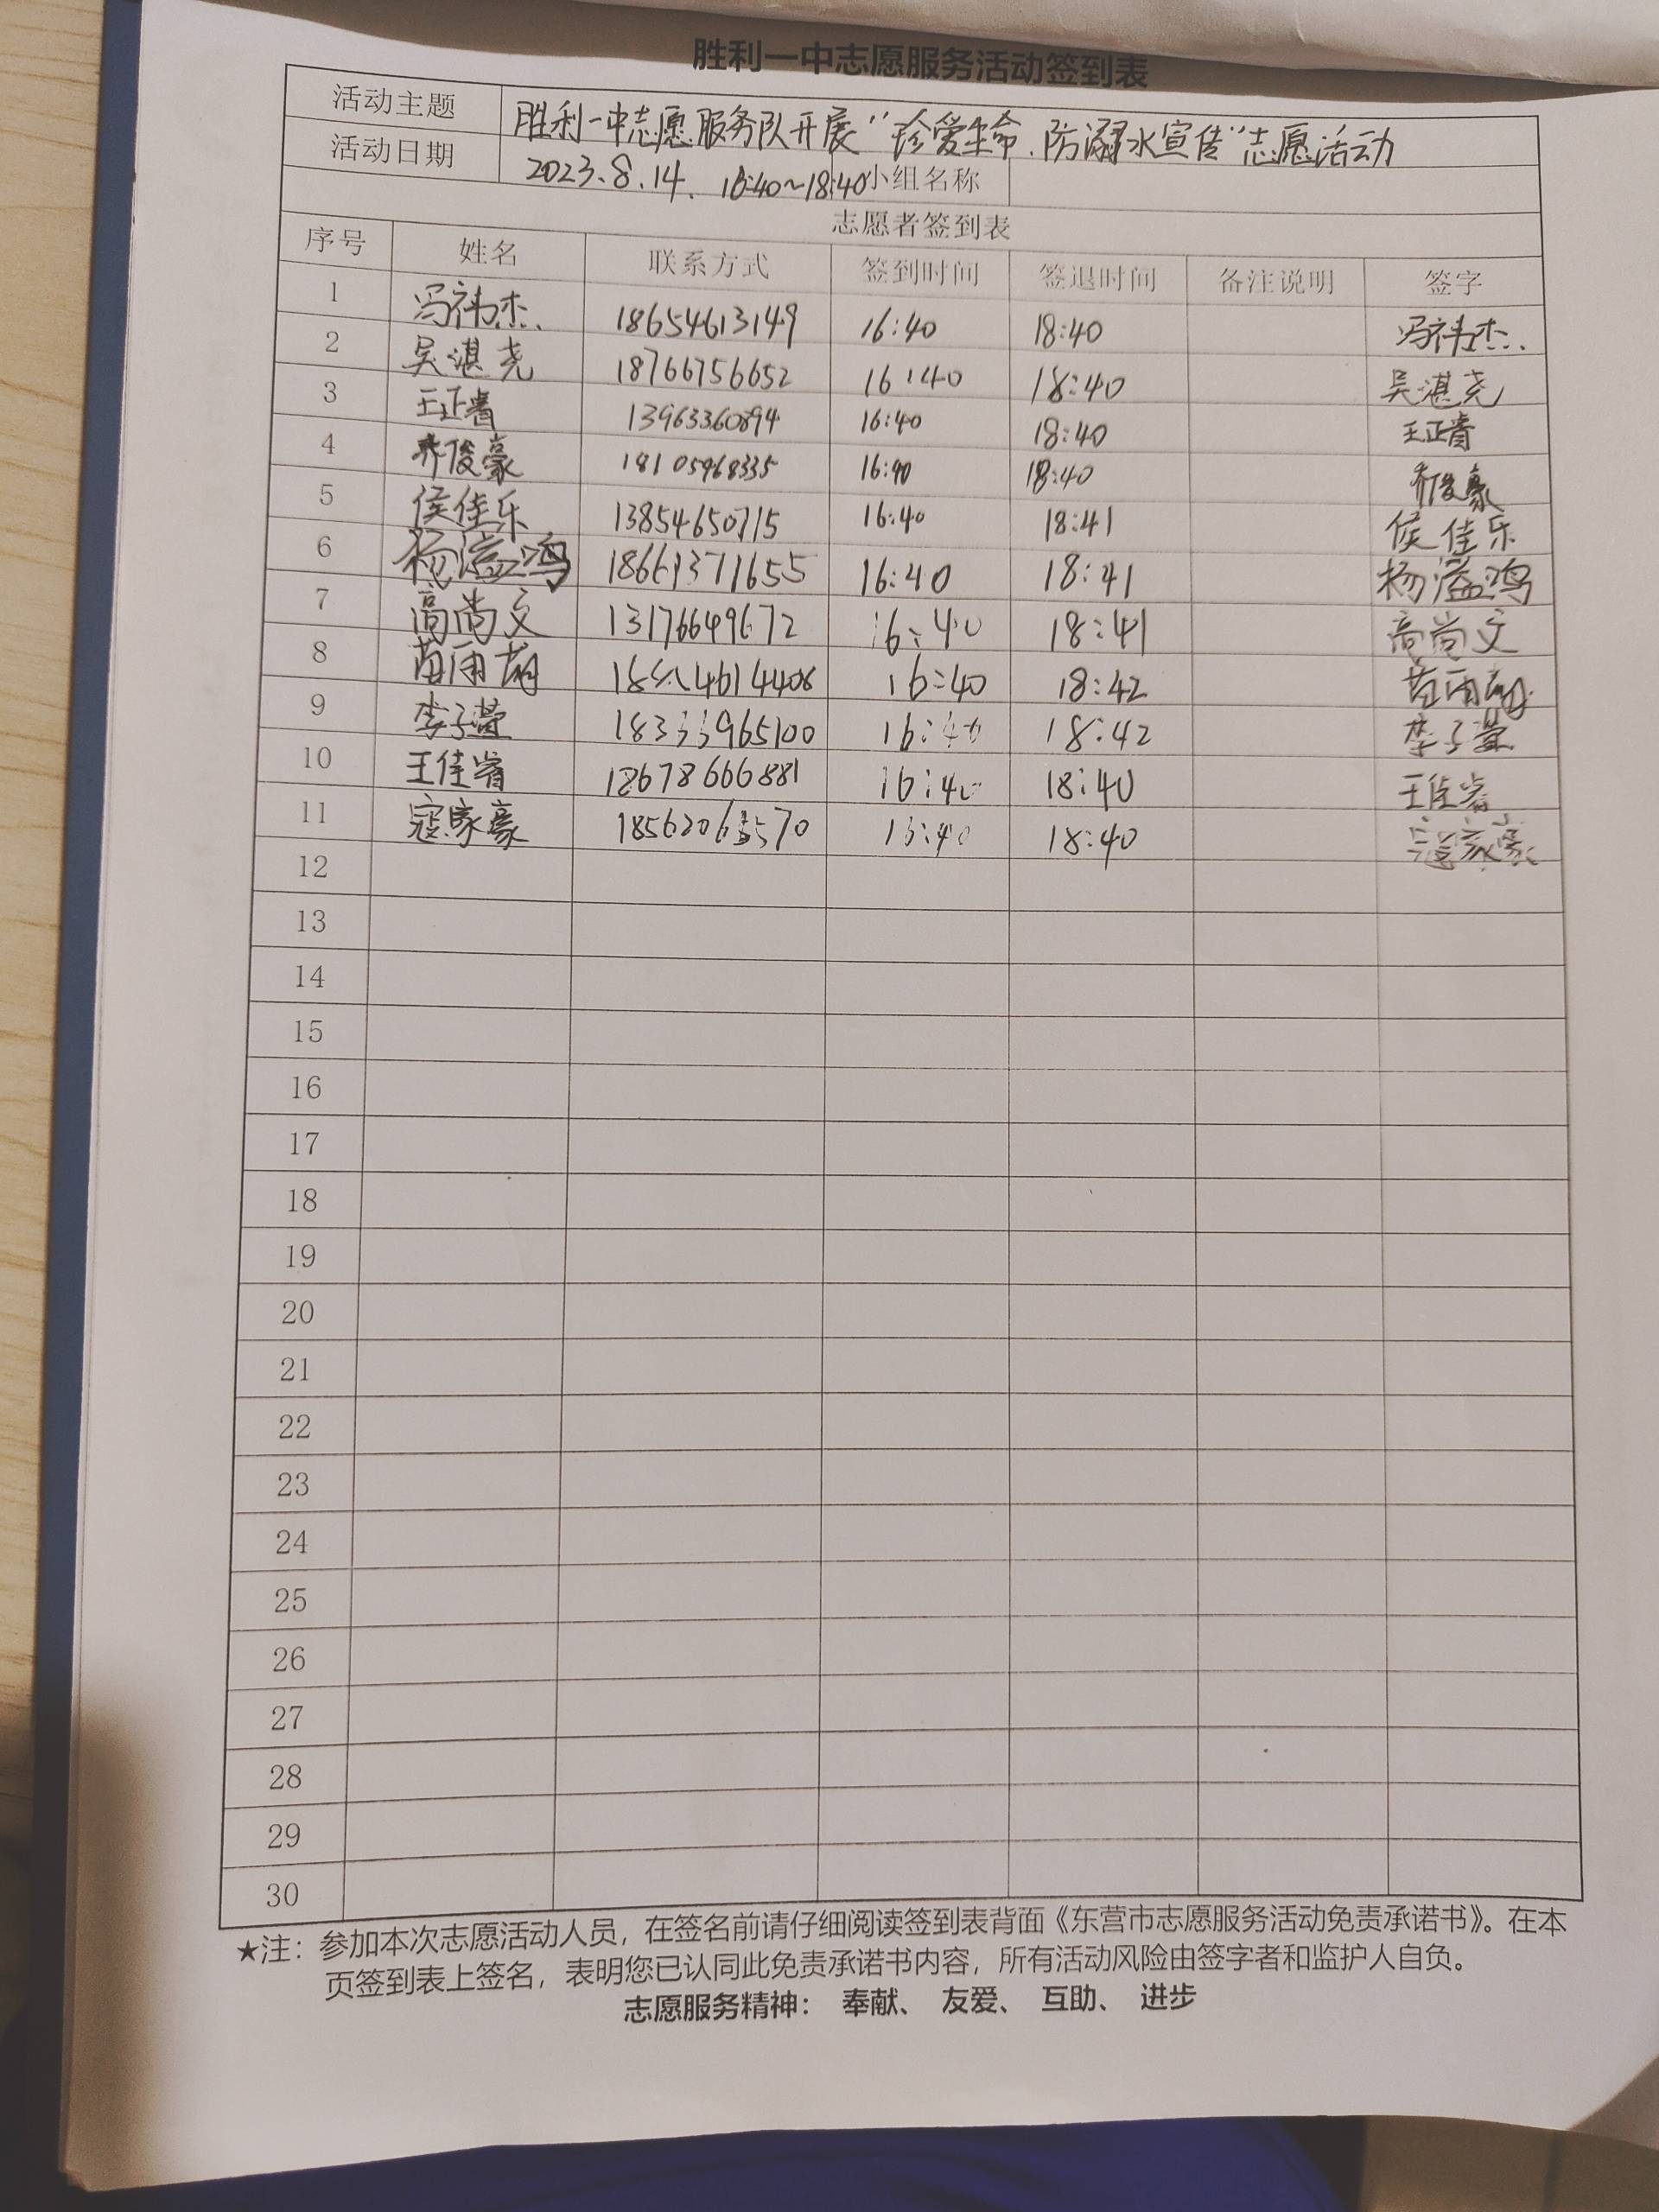 胜利一中志愿服务活动签到表
活动主题 胜利一中志愿服务队开展“珍爱生命、防溺水宣传”志愿活动
活动日期 2023.8.14. 16:40~18:40 小组名称
志愿者签到表
序号 姓名 联系方式 签到时间 签退时间 备注说明 签字
1 冯祎杰 18654613149 16:40 18:40 冯祎杰
2 吴湛尧 18766756652 16:40 18:40 吴湛尧
3 王正睿 13963360894 16:40 18:40 王正睿
4 乔俊豪 18105468335 16:40 18:40 乔俊豪
5 侯佳乐 13854650715 16:40 18:41 侯佳乐
6 杨溢鸣 18661371655 16:40 18:41 杨溢鸣
7 高尚文 13176649672 16:40 18:41 高尚文
8 苗雨 16:40 18:42 苗雨
9 李子萱 18333965100 16:40 18:42 李子萱
10 王佳睿 18678666881 16:40 18:40 王佳睿
11 寇家豪 16:40 18:40 寇家豪
12
13
14
15
16
17
18
19
20
21
22
23
24
25
26
27
28
29
30
★注：参加本次志愿活动人员，在签名前请仔细阅读签到表背面《东营市志愿服务活动免责承诺书》。在本
页签到表上签名，表明您已认同此免责承诺书内容，所有活动风险由签字者和监护人自负。
志愿服务精神： 奉献、 友爱、 互助、 进步